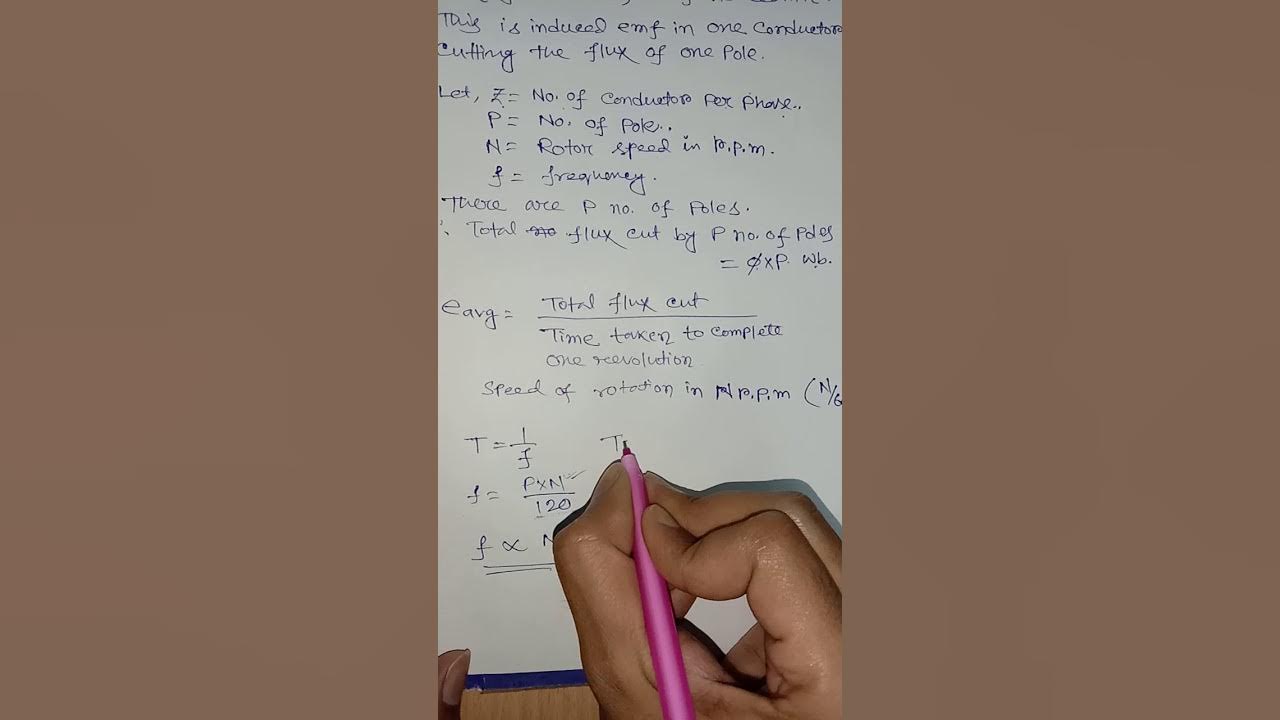 This is induced emf in one conductor
cutting the flux of one Pole.
Let, Z = No. of conductors Per Phase..
P = No. of Pole..
N = Rotor speed in r.p.m.
f = frequency.
There are P no. of Poles.
∴ Total flux cut by P no. of Poles
= ϕxP. wb.
eavg = Total flux cut
Time taken to complete
one reevolution
Speed of rotation in N r.p.m (N/6
T = 1/f T
f = PxN/120
f ∝ N